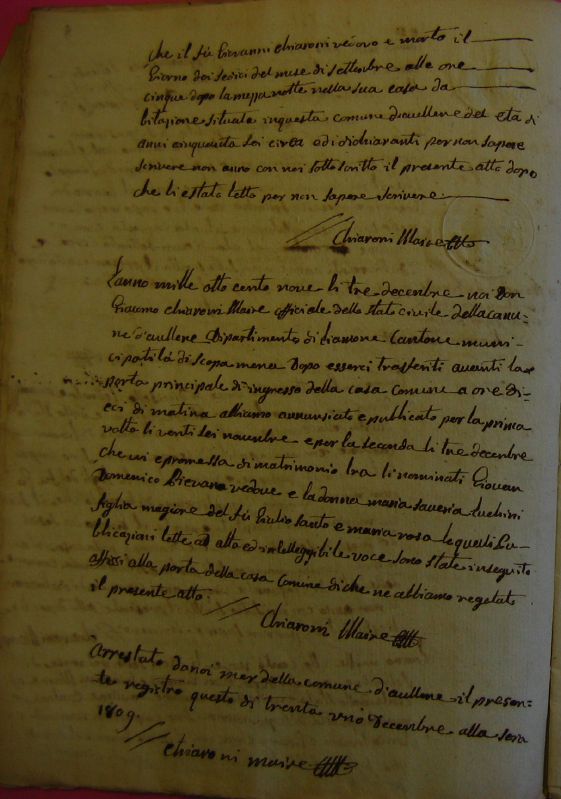 che il fù Giovanni chiaroni vedovo e morto il
Giorno dei sedici del mese di settembre alle ore
cinque dopo la mezza notte nella sua casa da
bitazione situata inquesta comune d'aullene del età di
anni cinquanta sei circa ed i dichiaranti per non sapere
scrivere non anno con noi sotto scritto il presente atto dopo
che li e stato letto per non sapere scrivere
Chiaroni Maire
L'anno mille otto cento nove li tre decembre noi Don
Giacomo chiaroni Maire officiale dello stato civile della comu-
ne d'aullene Dipartimento di Liamone Cantone muni-
cipatità di scopamena Dopo esserci trasferiti avanti la
porta principale di ingresso della casa comune a ore di-
eci di matina abbiamo annunsiato e publicato per la prima
volta li venti sei novembre e per la seconda li tre decembre
che vi e promessa di matrimonio tra li nominati Giovan
Domenico vedovo e la donna maria saveria Luchini
figlia magiore del fù Giulio santo e maria rosa le quali Pu-
blicazioni lette ad alta ed intelleggibile voce sono state inseguito
affissi alla porta della casa Comune di che ne abbiamo regetato
il presente atto
Chiaroni Maire
Arrestato da noi mer della comune d'aullene il presen-
te registro questo di trenta uno Decembre alla sera
1809.
chiaroni maire